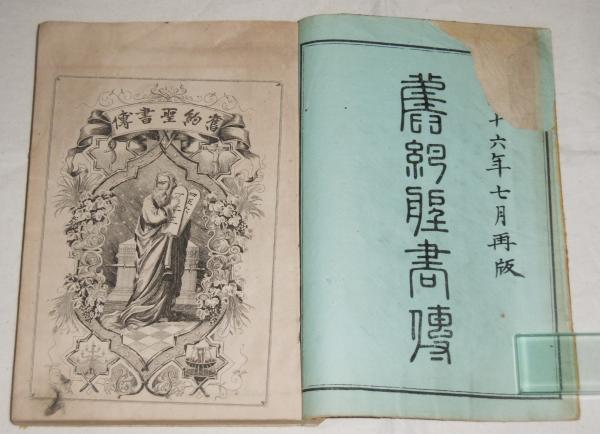 十六年七月再版
舊約聖書傳
舊約聖書傳